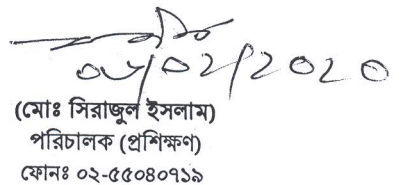 ০৬/০২/২০২০
(মোঃ সিরাজুল ইসলাম)
পরিচালক (প্রশিক্ষণ)
ফোনঃ ০২-৫৫০৪০৭১৯